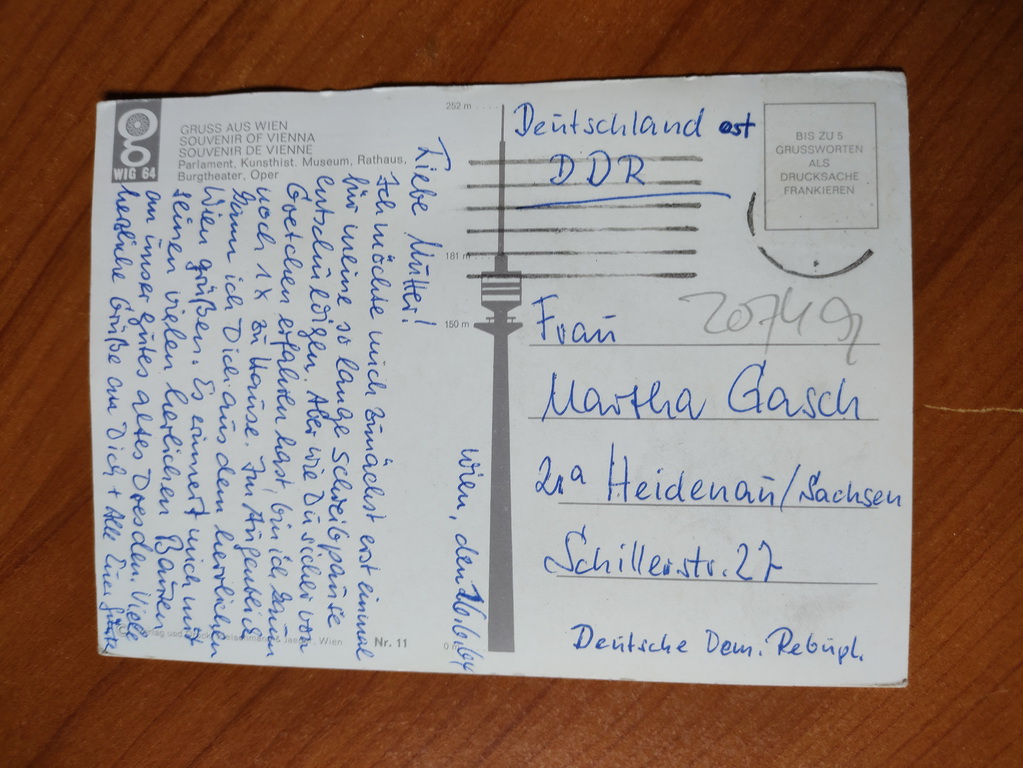 WIG 64
GRUSS AUS WIEN
SOUVENIR OF VIENNA
SOUVENIR DE VIENNE
Parlament, Kunsthist. Museum, Rathaus,
Burgtheater, Oper
Wien, den 16.6.64
Liebe Mutter!
Ich möchte mich zunächst erst einmal
für meine so lange Schreibpause
entschuldigen. Aber wie Du sicher von
Gretchen erfahren hast, bin ich kaum
noch 1x zu Hause. Im Augenblick
kann ich Dich aus dem herrlichen
Wien grüßen. Es erinnert mich mit
seinen vielen herrlichen Bauten
an unser gutes altes Dresden. Viele
herzliche Grüße an Dich + Alle Euer
Nr. 11
252 m
181 m
150 m
0 m
Deutschland ost
DDR
BIS ZU 5
GRUSSWORTEN
ALS
DRUCKSACHE
FRANKIEREN
Frau
Martha Gasch
Heidenau/Sachsen
Schillerstr. 27
Deutsche Dem. Rebupl.